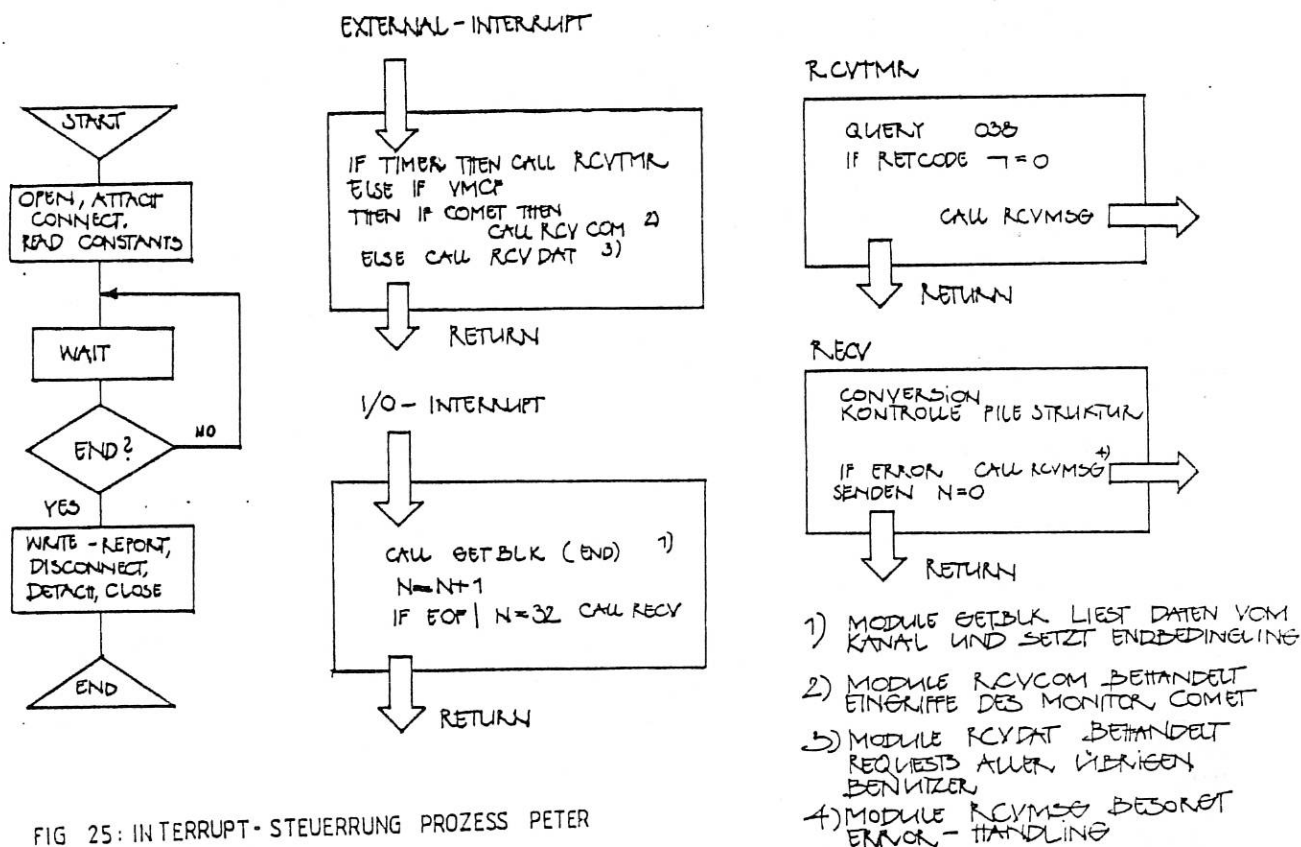 START
OPEN, ATTACH
CONNECT,
READ CONSTANTS
WAIT
END?
NO
YES
WRITE-REPORT,
DISCONNECT,
DETACH, CLOSE
END
EXTERNAL-INTERRUPT
IF TIMER THEN CALL RCVTMR
ELSE IF VMCF
THEN IF COMET THEN
CALL RCVCOM 2)
ELSE CALL RCVDAT 3)
RETURN
I/O-INTERRUPT
CALL GETBLK (END) 1)
N=N+1
IF EOF | N=32 CALL RECV
RETURN
RCVTMR
QUERY 038
IF RETCODE ¬=0
CALL RCVMSG
RETURN
RECV
CONVERSION
KONTROLLE FILE STRUKTUR
IF ERROR CALL RCVMSG 4)
SENDEN N=0
RETURN
1) MODULE GETBLK LIEST DATEN VOM
KANAL UND SETZT ENDBEDINGUNG
2) MODULE RCVCOM BEHANDELT
EINGRIFFE DES MONITOR COMET
3) MODULE RCVDAT BEHANDELT
REQUESTS ALLER ÜBRIGEN
BENUTZER
4) MODULE RCVMSG BESORGT
ERROR-HANDLING
FIG 25: INTERRUPT-STEUERRUNG PROZESS PETER